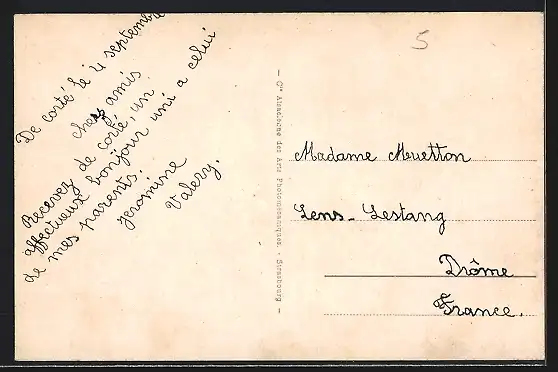 De corté le 4 septembre
chers amis
Recevez de corté, un
affectueux bonjour uni a celui
de mes parents.
Jeromine
Valery.
5
— Cie Alsacienne des Arts Photomécaniques. - Strasbourg —
Madame Muetton
Lens-Lestang
Drôme
France.